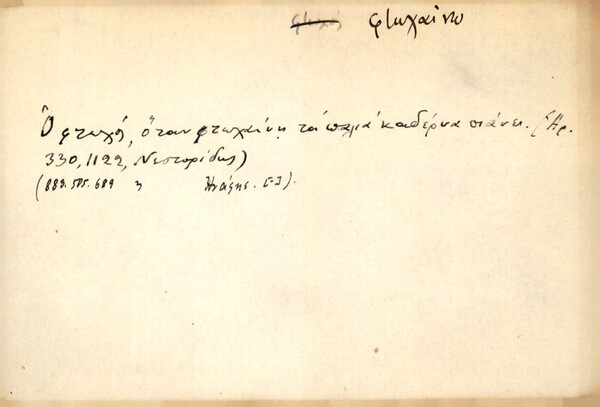 φτωχαίνω
Ὁ φτωχός, ὅταν φτωχαίνῃ τά παλιά καδέρνα πιάνει. (Ἀρ.
330, 1122, Νεστορίδης)
(889. 505. 689